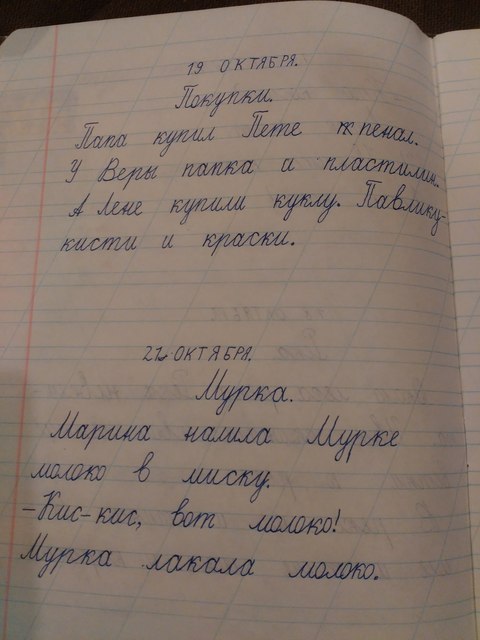 19 ОКТЯБРЯ.
Покупки.
Папа купил Пете пенал.
У Веры папка и пластилин.
А Лене купили куклу. Павлику-
кисти и краски.
21 ОКТЯБРЯ.
Мурка.
Марина налила Мурке
молоко в миску.
-Кис-кис, вот молоко!
Мурка лакала молоко.